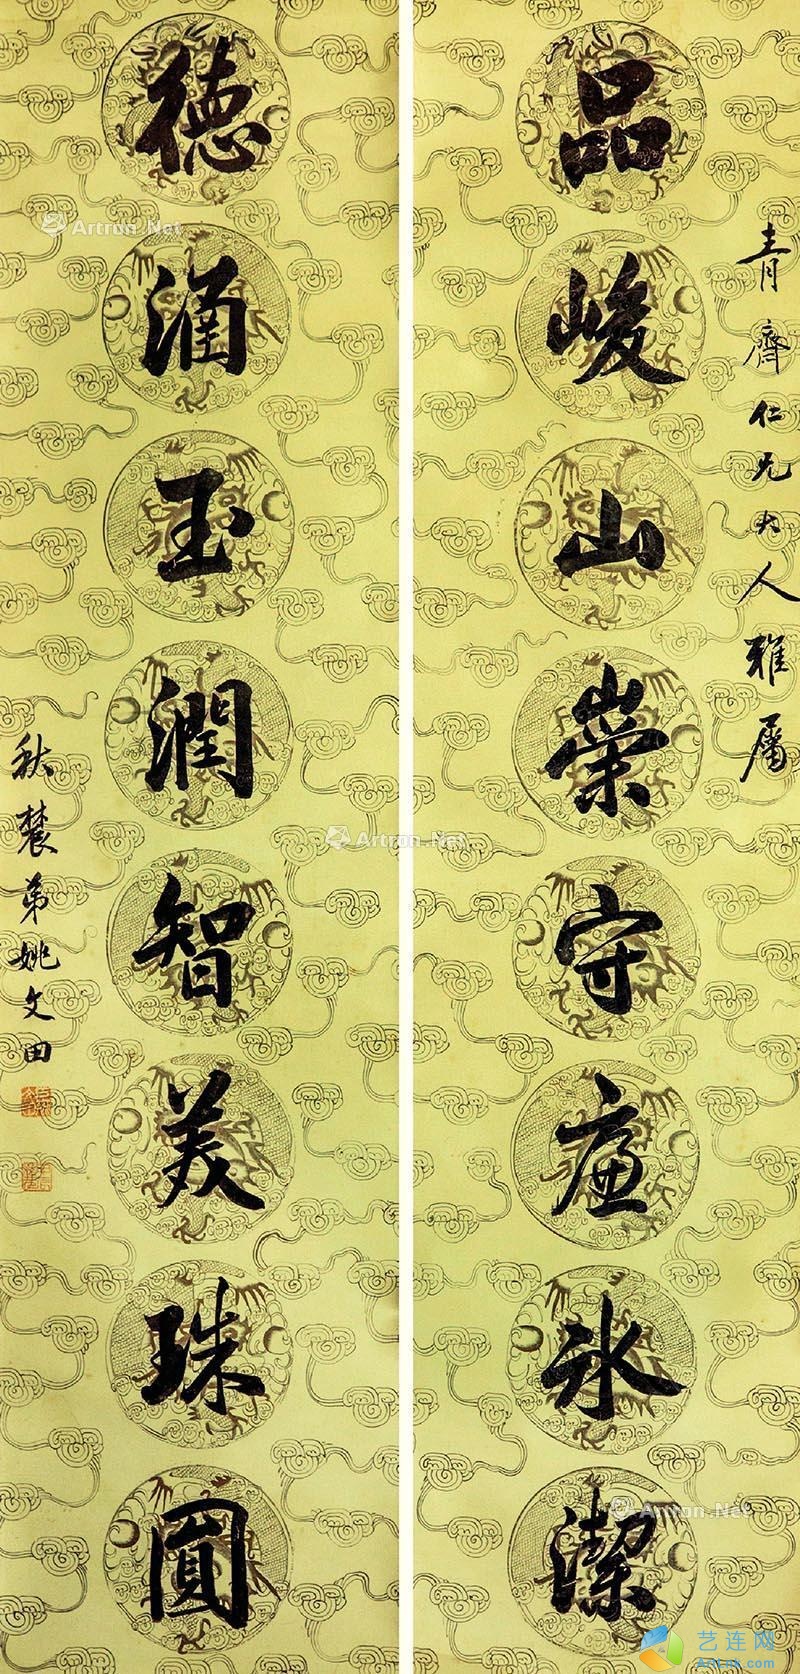 青齋仁兄大人雅屬
品峻山崇守廉冰潔
德涵玉潤智美珠圓
秋農弟姚文田
Artron.Net
Artron.Net
Artron.Net
艺连网